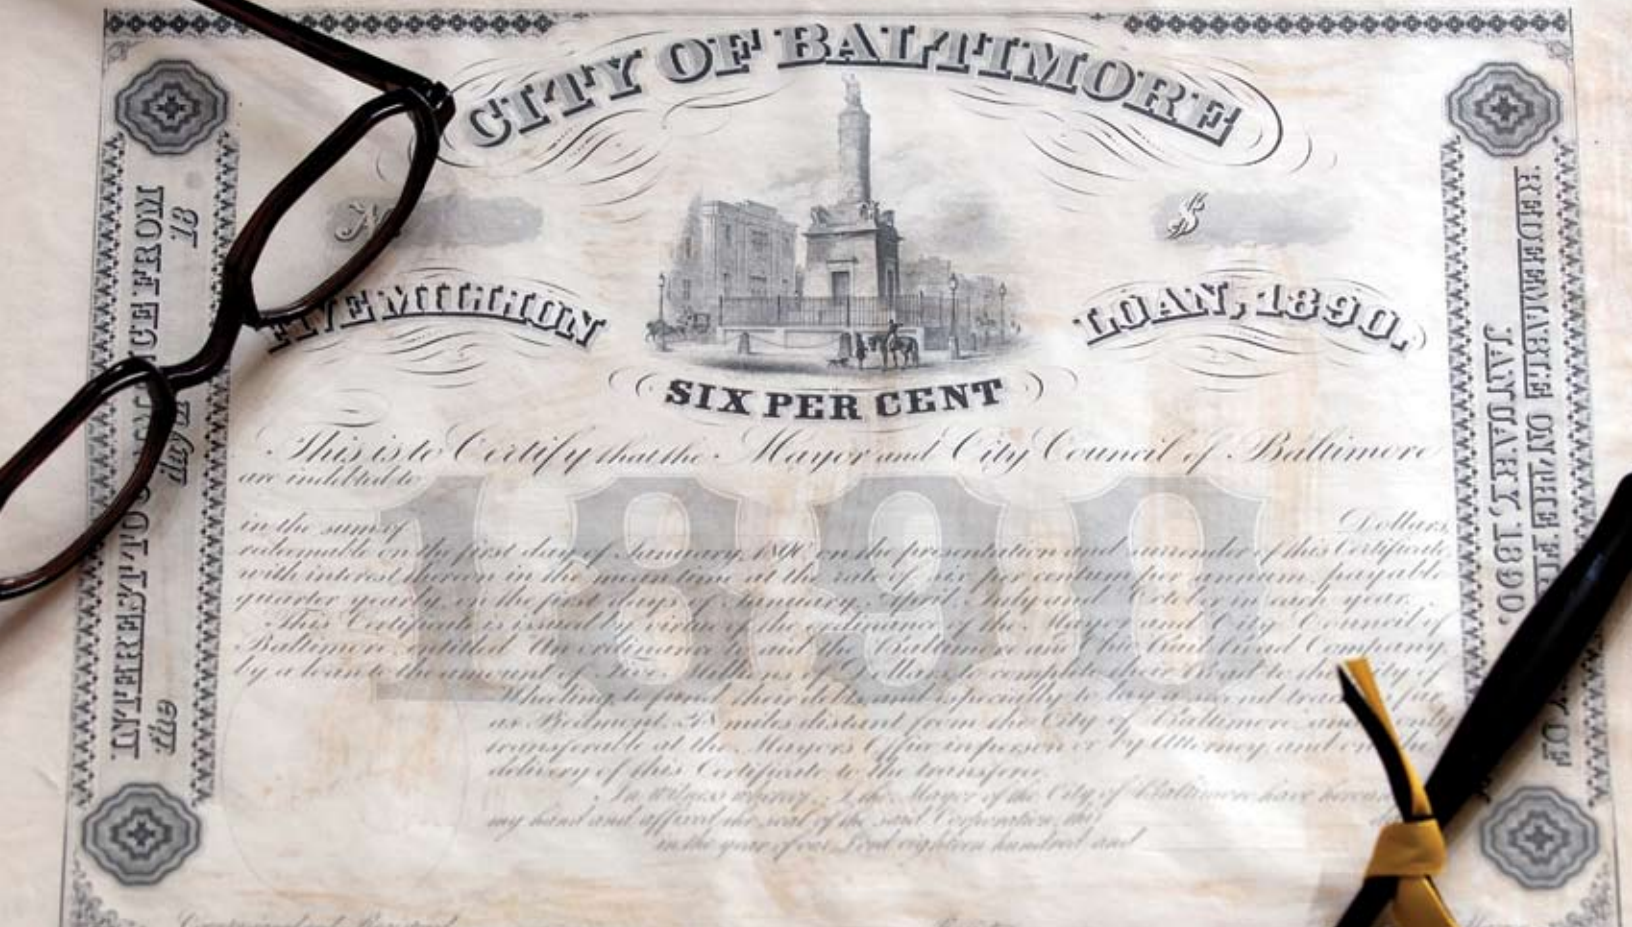 CITY OF BALTIMORE
$
FIVE MILLION
LOAN, 1890.
SIX PER CENT
INTEREST TO COMMENCE FROM
the days 18
REDEEMABLE ON THE FIRST DAY OF
JANUARY, 1890.
1890
This is to Certify that the Mayor and City Council of Baltimore
are indebted to
in the sum of Dollars,
redeemable on the first day of January, 1890, on the presentation and surrender of this Certificate
with interest thereon in the mean time at the rate of six per centum per annum, payable
quarter yearly, on the first days of January, April, July and October in each year.
This Certificate is issued by virtue of the ordinance of the Mayor and City Council of
Baltimore, entitled "An ordinance to aid the Baltimore and Ohio Rail Road Company
by a loan to the amount of Five Millions of Dollars, to complete their road to the city of
Wheeling, to fund their debt and especially to lay a second track as far
as Piedmont, miles distant from the City of Baltimore, and is only
transferable at the Mayors Office in person or by Attorney, and on the
delivery of this Certificate to the transferee.
In Witness whereof, I, the Mayor of the City of Baltimore, have hereunto
my hand and affixed the seal of the said Corporation, this
in the year of our Lord eighteen hundred and